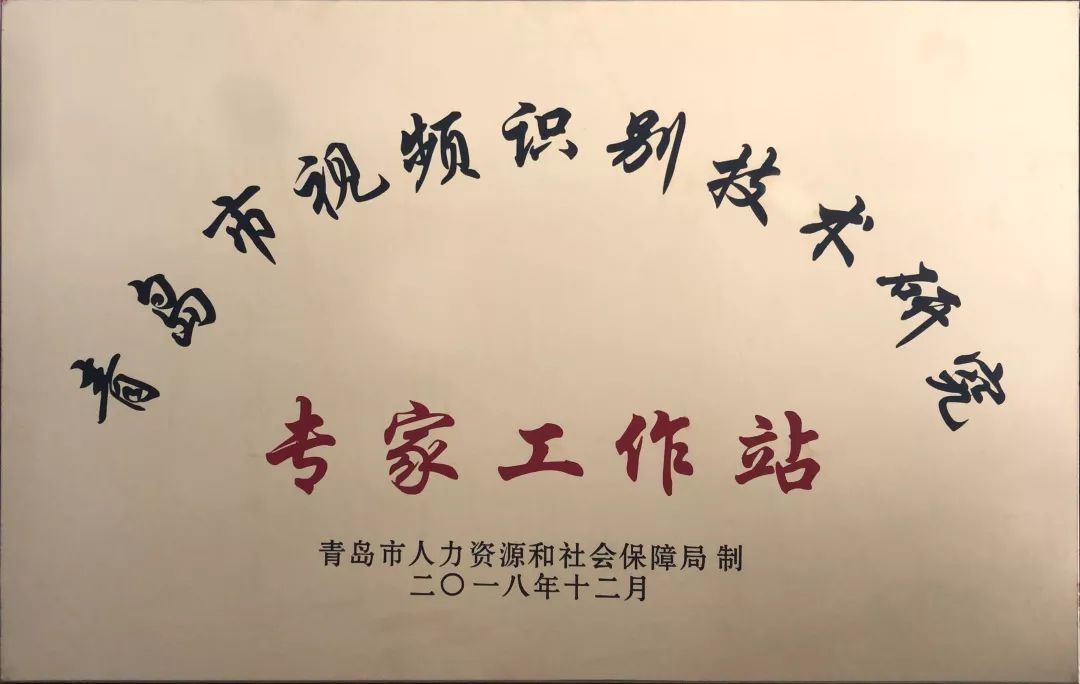 青岛市视频识别技术研究
专家工作站
青岛市人力资源和社会保障局 制
二〇一八年十二月